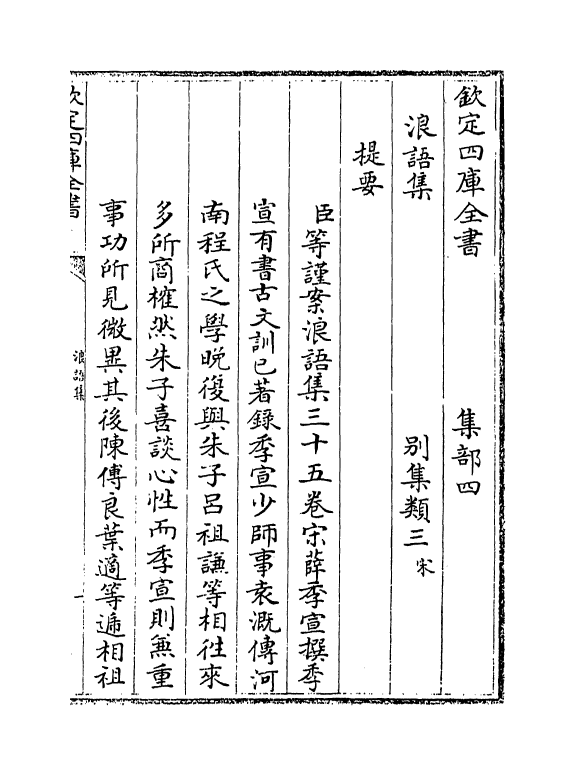 欽定四庫全書 集部四
浪語集 別集類三宋
提要
臣等謹案浪語集三十五卷宋薛季宣撰季
宣有書古文訓已著錄季宣少師事袁溉傳河
南程氏之學晚復與朱子呂祖謙等相徃來
多所商榷然朱子喜談心性而季宣則兼重
事功所見微異其後陳傅良葉適等遞相祖
欽定四庫全書 浪語集 一